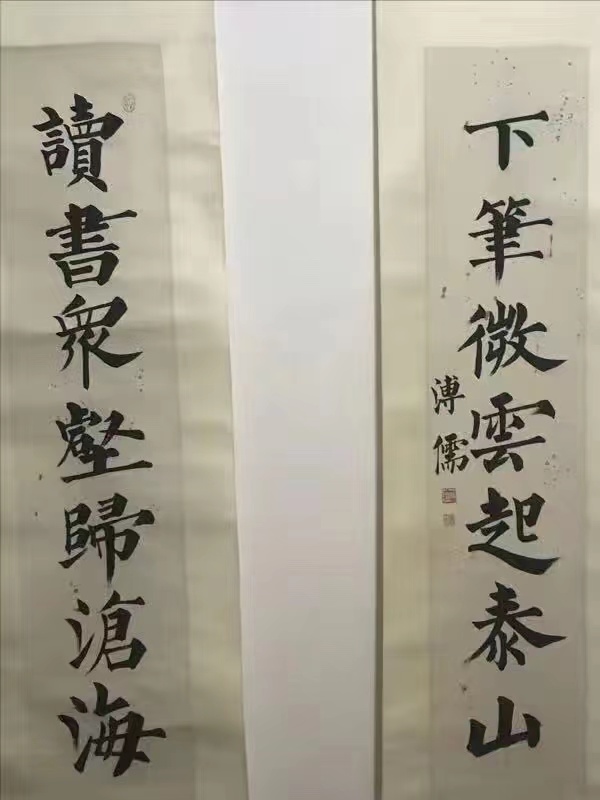 讀書衆壑歸滄海
下筆微雲起泰山
溥儒